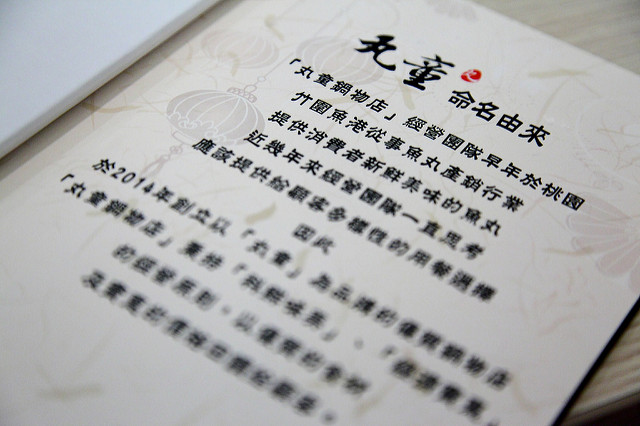 丸童 命名由來
「丸童鍋物店」經營團隊早年於桃園
竹圍魚港從事魚丸產銷行業
提供消費者新鮮美味的魚丸
近幾年來經營團隊一直思考
應該提供給顧客多樣性的用餐選擇
因此
於2014年創立以「丸童」為品牌的優質鍋物店
「丸童鍋物店」秉持
的經營原則，以優質的食材
及實惠的價格回饋給顧客。